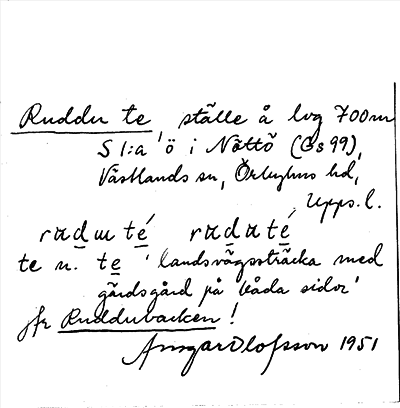 Ruddu te, ställe å lvg 700 m
S 1:a ö i Nöttö (Gs 99),
Västlands sn, Örbyhus hd,
Upps. l.
rʉdɯ té rʉdʉté
te n. te 'landsvägssträcka med
gärdsgård på båda sidor'
jfr Ruddubacken!
Ansgar Olofsson 1951